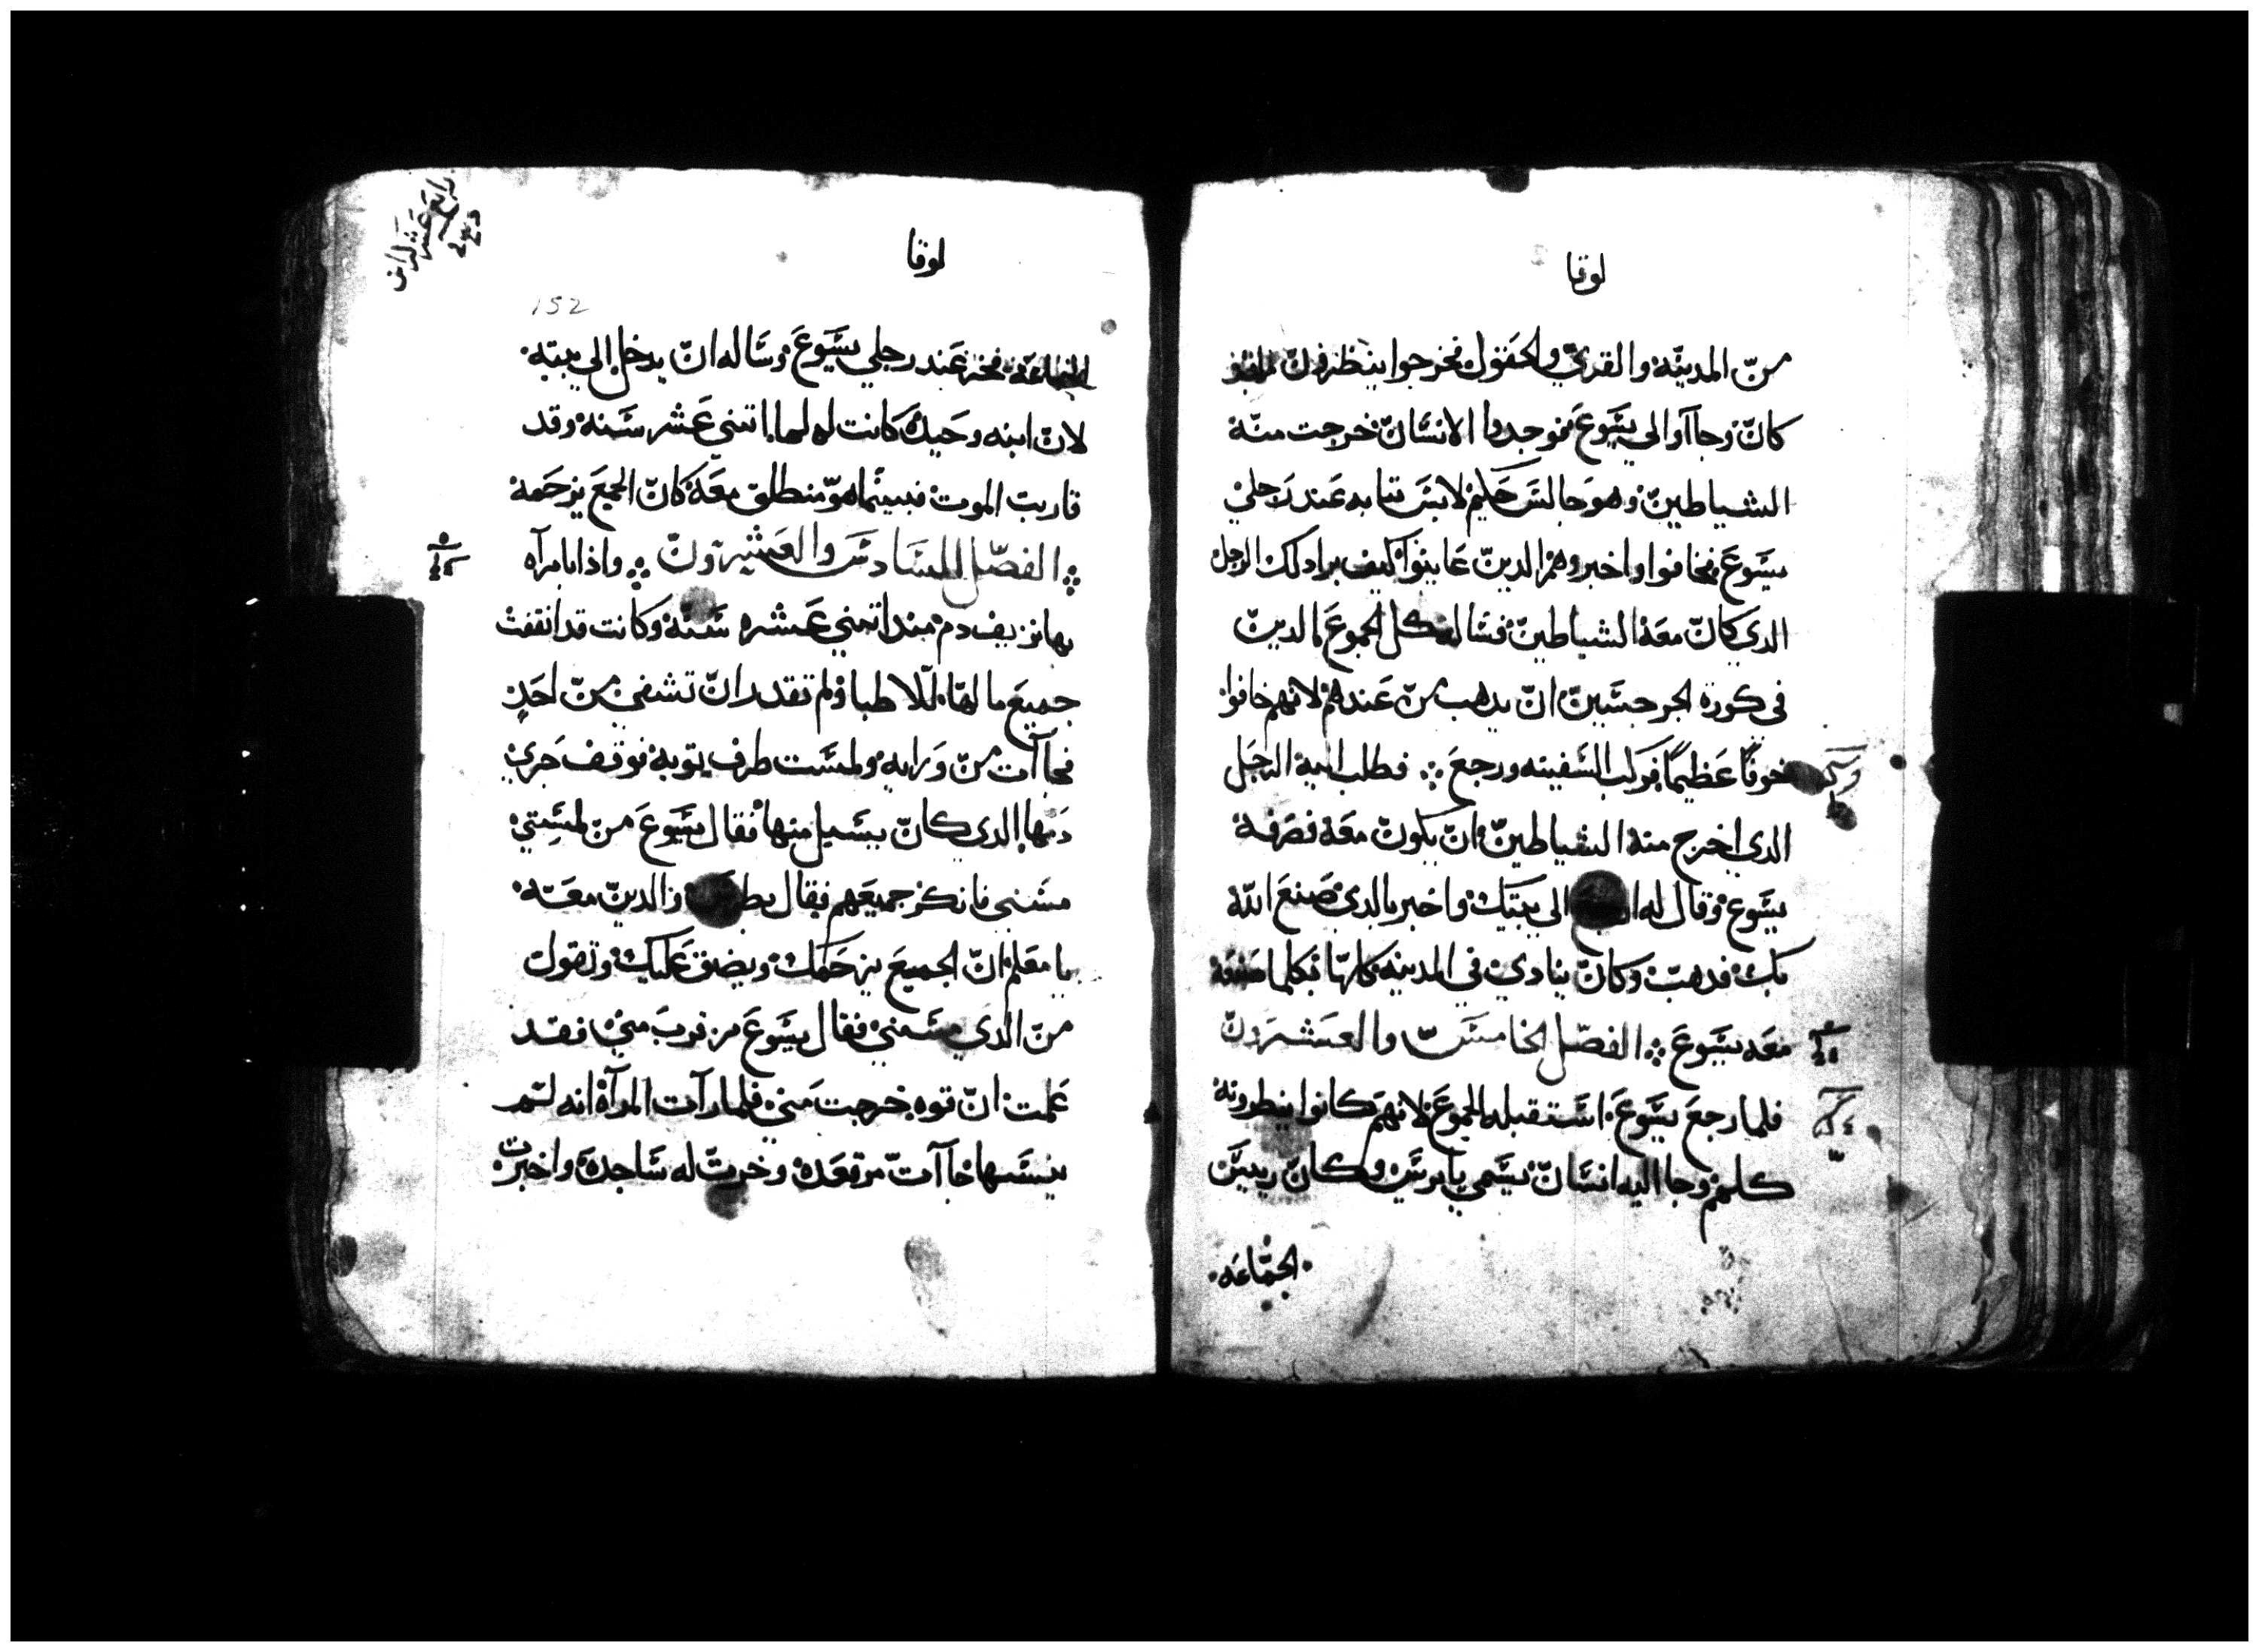 لوقا
من المدينه والقري والحقول فخرجوا ينظرون
كان وجاآوا الي يسوع فوجدوا الانسان خرجت منه
الشياطين وهو جالس حليم لابس تيابه عند رجلي
يسوع فخافوا واخبروهم الدين عاينوا كيف برا دلك الرجل
الدي كان معه الشياطين فساله كل الجموع الدين
في كورة الجرجسيين ان يدهب من عندهم لانهم خافوا
خوفا عظيما فركب السفينه ورجع ⁘ فطلب اليه الرجل
الدي اخرج منه الشياطين ان يكون معه فصرفه
يسوع وقال له الى بيتك واخبر بالدي صنع الله
بك فدهب وكان ينادي في المدينه كلها بكلما صنعه
معه يسوع ⁘ الفصل الخامس والعشرون
فلما رجع يسوع استقبله الجموع لانهم كانوا ينظرونه
كلهم وجا اليه انسان يسمي يايرس وكان رييس
الجماعه
لوقا
152
الجماعه فخر عند رجلي يسوع وساله ان يدخل الي بيته
لان ابنه وحيده كانت له لها اتني عشر سنه وقد
قاربت الموت فبينما هو منطلق معه كان الجمع يزحمه
⁘ الفصل السادس والعشرون ⁘ وادا بامرآه
بها نزيف دم مند اتني عشره سنه وكانت قد انفقت
جميع ما لها للاطبا ولم تقدر ان تشفي من احد
فجاآت من ورايه ولمست طرف توبه فوقف جري
دمها الدي كان يسيل منها فقال يسوع من لمسني
مسني فانكر جميعهم فقال بطرس والدين معه
يا معلم ان الجميع يزحمك ويضيق عليك وتقول
من الدي مسني فقال يسوع من قرب مني فقد
علمت ان قوه خرجت مني فلما رآت المرآه انه لم
ينسها جاآت مرتعده وخرت له ساجده واخبرت